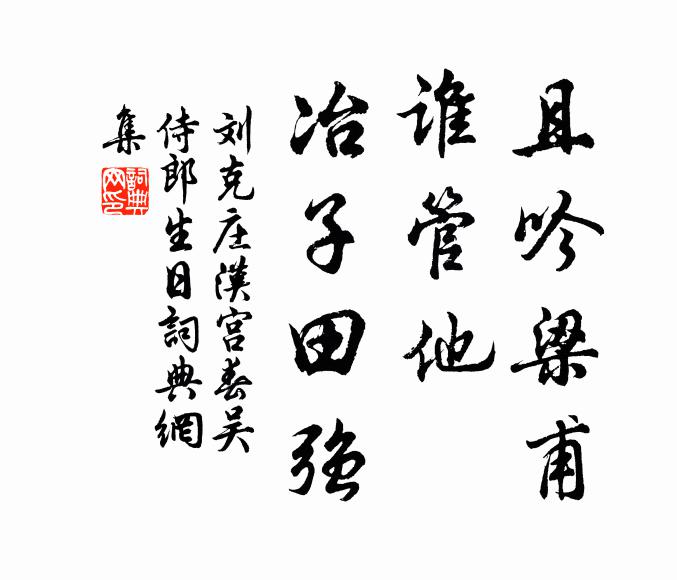 且吟梁甫
谁管他
冶子田强
刘克庄漢宫春吴
侍郎生日詞典網
集
詞典
网印